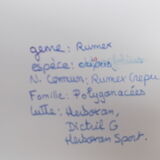 genre: Rumex
espèce: crispus
N. Comun: Rumex Crepu
Famille: Polygonacées
lutte: Herboran,
Dictril G
Herboran Sport.